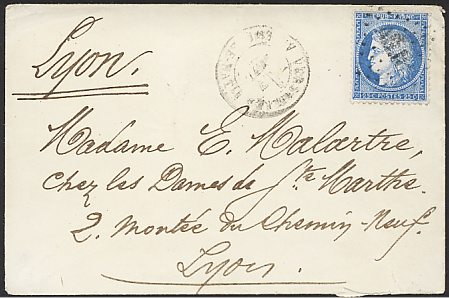 Lyon.
REPUB. FRANC.
25 C. POSTES 25 C.
Madame E. Malartre,
chez les Dames de Ste Marthe.
2. Montée du Chemin-Neuf.
Lyon.